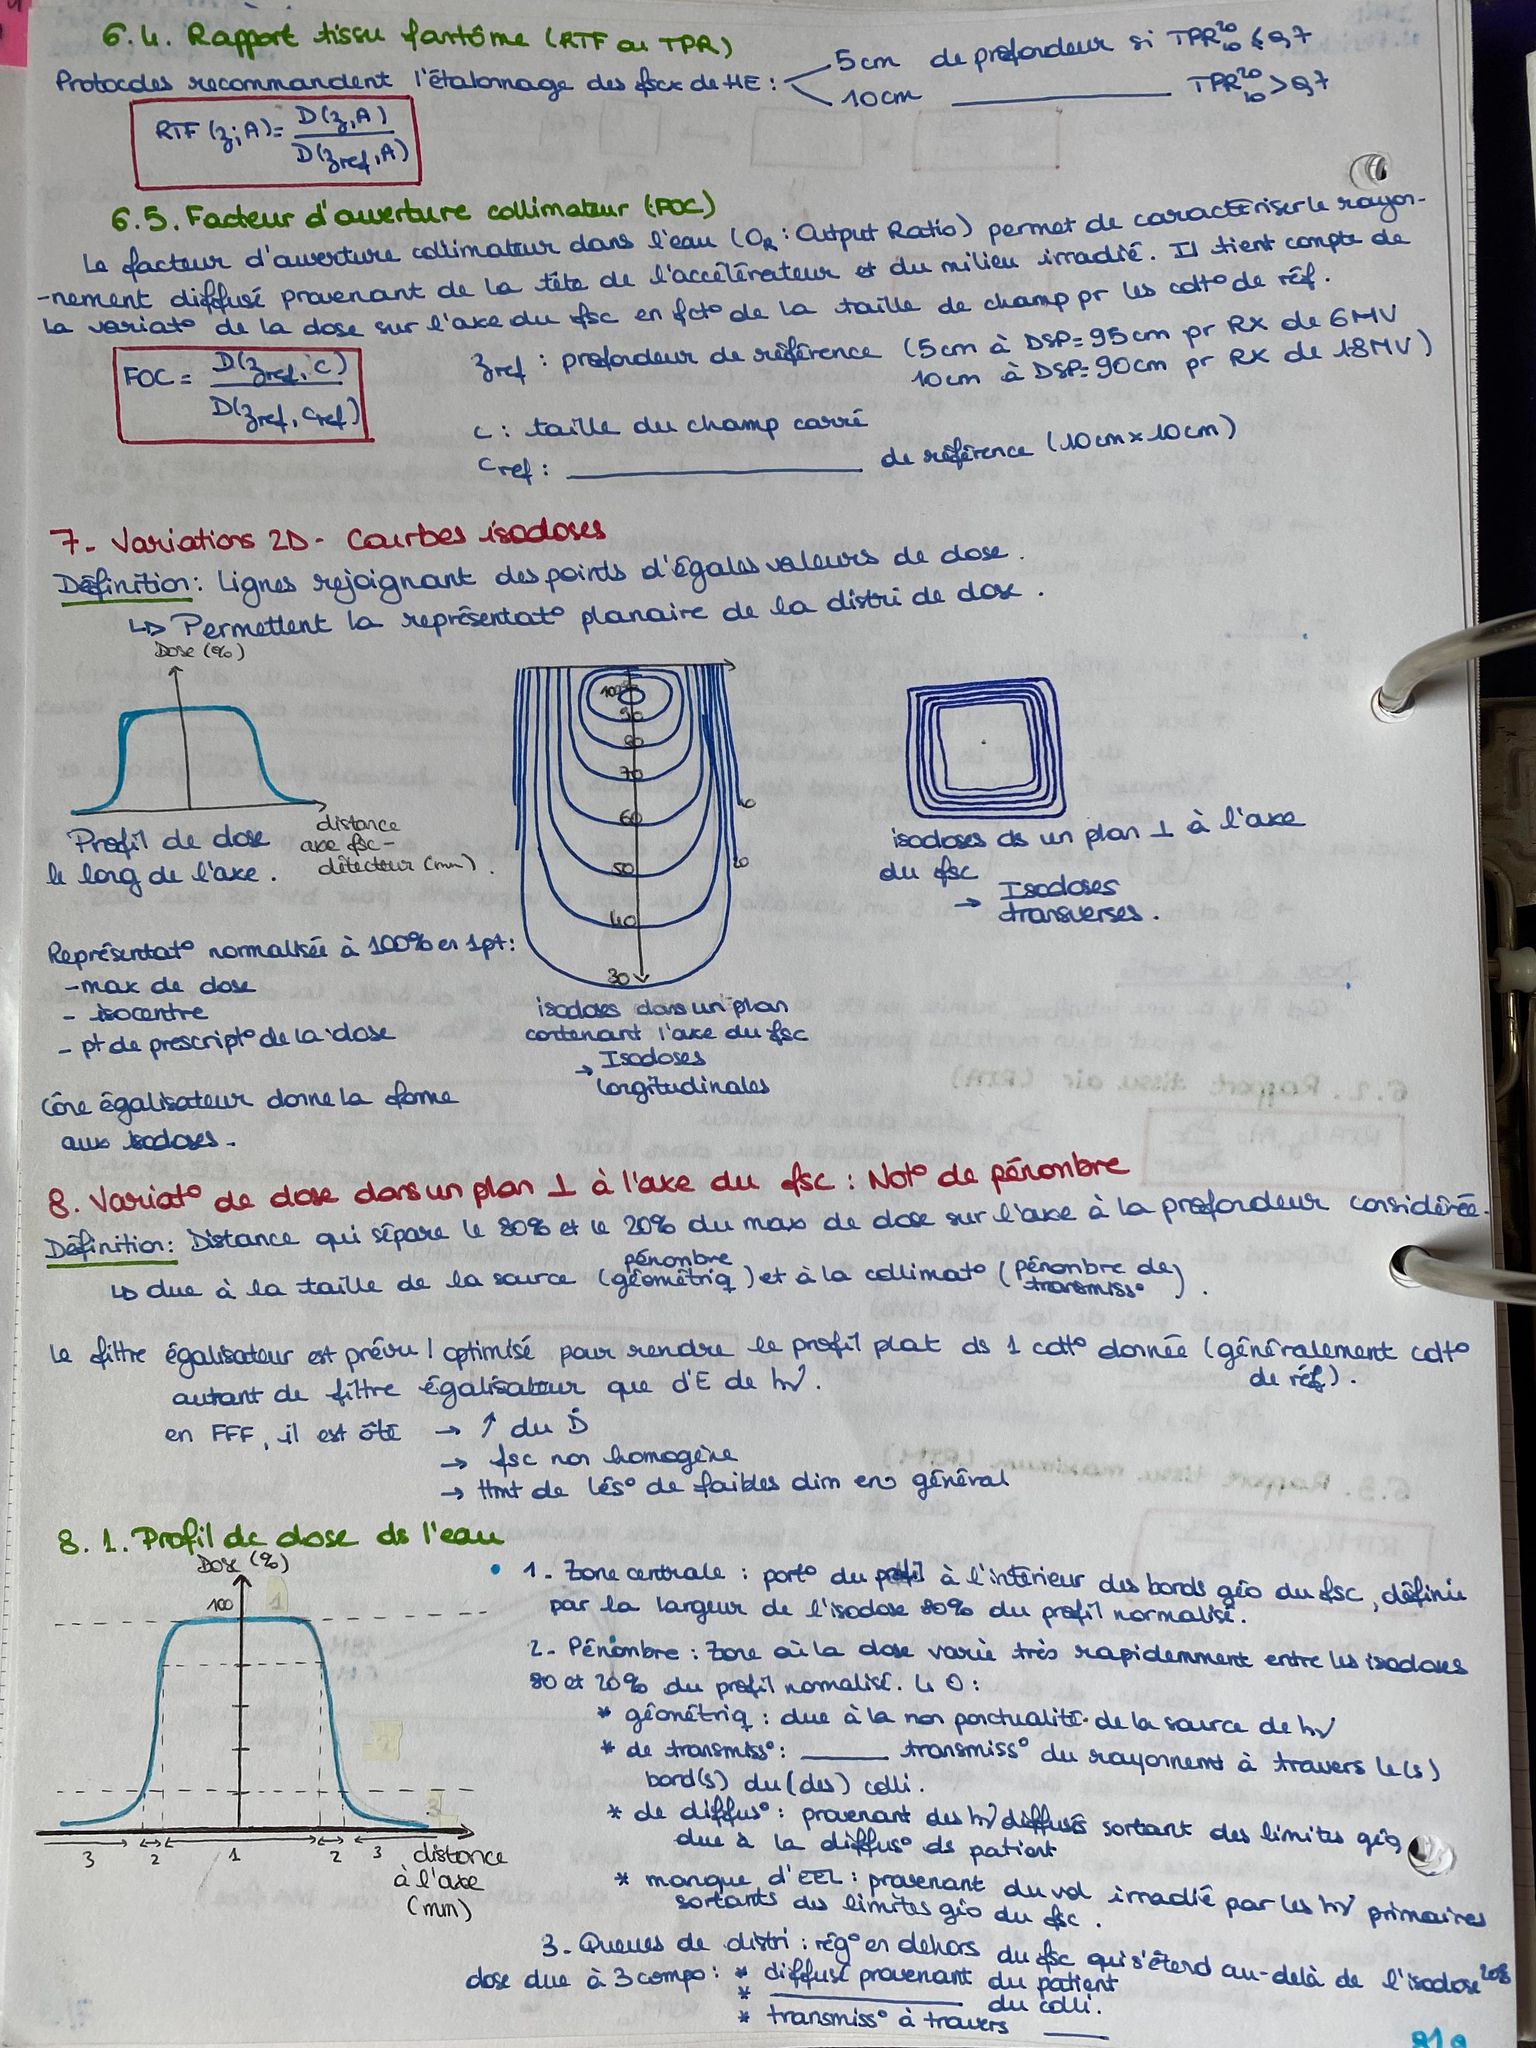 6.4. Rapport tissu fantôme (RTF ou TPR)
Protocoles recommandent l'étalonnage des fscx de HE :
5cm de profondeur si TPR²⁰₁₀ ≤ 0,7
10cm ________ TPR²⁰₁₀ > 0,7
RTF (z;A) = D(z,A) / D(zref,A)
6.5. Facteur d'ouverture collimateur (FOC)
Le facteur d'ouverture collimateur dans l'eau (OR : Output Ratio) permet de caractériser le rayon-
-nement diffusé provenant de la tête de l'accélérateur et du milieu irradié. Il tient compte de
la variat° de la dose sur l'axe du fsc en fct° de la taille de champ pr les cdt° de réf.
FOC = D(zref, c) / D(zref, cref)
zref : profondeur de référence (5cm à DSP=95cm pr RX de 6MV
10cm à DSP=90cm pr RX de 18MV)
c : taille du champ carré
cref : ________ de référence (10cm×10cm)
7- Variations 2D - Courbes isodoses
Définition : Lignes rejoignant des points d'égales valeurs de dose.
↳ Permettent la représentat° planaire de la distri de dose.
Dose (%)
distance
axe fsc-
détecteur (mm).
Profil de dose
le long de l'axe.
100%
90
80
70
60
50
40
30
20
isodoses dans un plan
contenant l'axe du fsc
→ Isodoses
longitudinales
isodoses ds un plan ⊥ à l'axe
du fsc
→ Isodoses
transverses.
Représentat° normalisée à 100% en 1pt :
- max de dose
- isocentre
- pt de prescript° de la dose
Cône égalisateur donne la forme
aux isodoses.
8. Variat° de dose dans un plan ⊥ à l'axe du fsc : Not° de pénombre
Définition : Distance qui sépare le 80% et le 20% du max de dose sur l'axe à la profondeur considérée.
↳ due à la taille de la source (pénombre géométriq) et à la collimat° (pénombre de transmiss°).
Le filtre égalisateur est prévu / optimisé pour rendre le profil plat ds 1 cdt° donnée (généralement cdt°
de réf).
autant de filtre égalisateur que d'E de hν.
en FFF, il est ôté → ↑ du Ḋ
→ fsc non homogène
→ Hmt de lés° de faibles dim en général
8.1. Profil de dose ds l'eau
Dose (%)
100
1
2
3
3 2 1 2 3
distance
à l'axe
(mm)
• 1- Zone centrale : port° du profil à l'intérieur des bords géo du fsc, définie
par la largeur de l'isodose 80% du profil normalisé.
2- Pénombre : Zone où la dose varie très rapidemment entre les isodoses
80 et 20% du profil normalisé. 4 O :
* géométriq : due à la non ponctualité de la source de hν
* de transmiss° : ____ transmiss° du rayonnemt à travers le(s)
bord(s) du (des) colli.
* de diffus° : provenant des hν diffusés sortant des limites géo,
due à la diffus° ds patient
* manque d'EEL : provenant du vol irradié par les hν primaires
sortants des limites géo du fsc.
3- Queues de distri : rég° en dehors du fsc qui s'étend au-delà de l'isodose 20%
dose due à 3 compo : * diffusé provenant du patient
* ________ du colli.
* transmiss° à travers ____